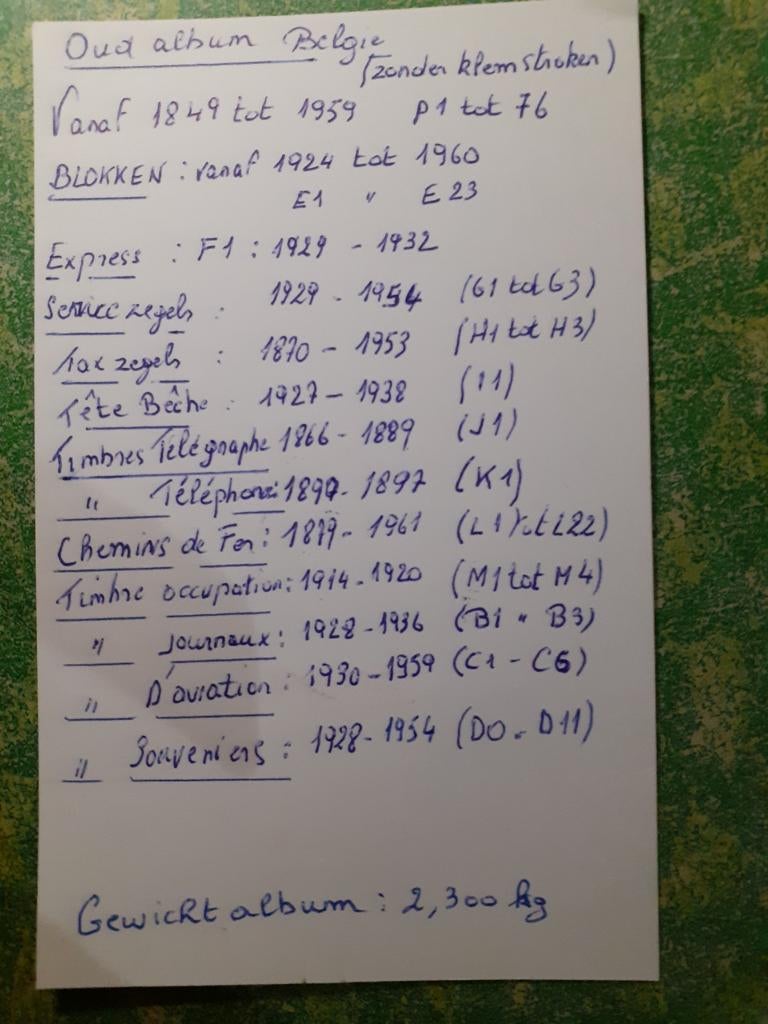 Oud album Belgie
(zonder klemstroken)
Vanaf 1849 tot 1959 P1 tot 76
BLOKKEN : vanaf 1924 tot 1960
E1 " E23
Express : F1 : 1929 - 1932
Service zegels : 1929 - 1954 (G1 tot G3)
Tax zegels : 1870 - 1953 (H1 tot H3)
Tête Bêche : 1927 - 1938 (I1)
Timbres Télégraphe 1866 - 1889 (J1)
" Téléphone: 1897 (K1)
Chemins de Fer : 1879 - 1961 (L1 tot L22)
Timbre occupation : 1914 - 1920 (M1 tot M4)
" Journaux : 1928 - 1936 (B1 " B3)
" D'aviation : 1930 - 1959 (C1 - C6)
" Souveniers : 1928 - 1954 (D0 - D11)
Gewicht album : 2,300 kg